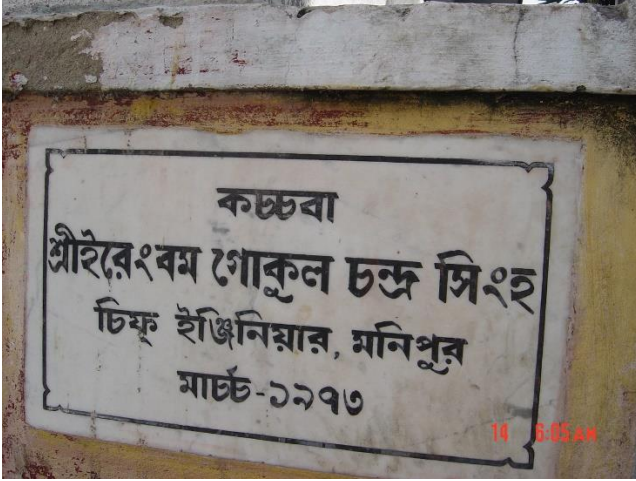 কচ্চবা
শ্রীইরেংবম গোকুল চন্দ্র সিংহ
চিফ্ ইঞ্জিনিয়ার, মনিপুর
মার্চ্চ-১৯৭৩
14 6:05AM